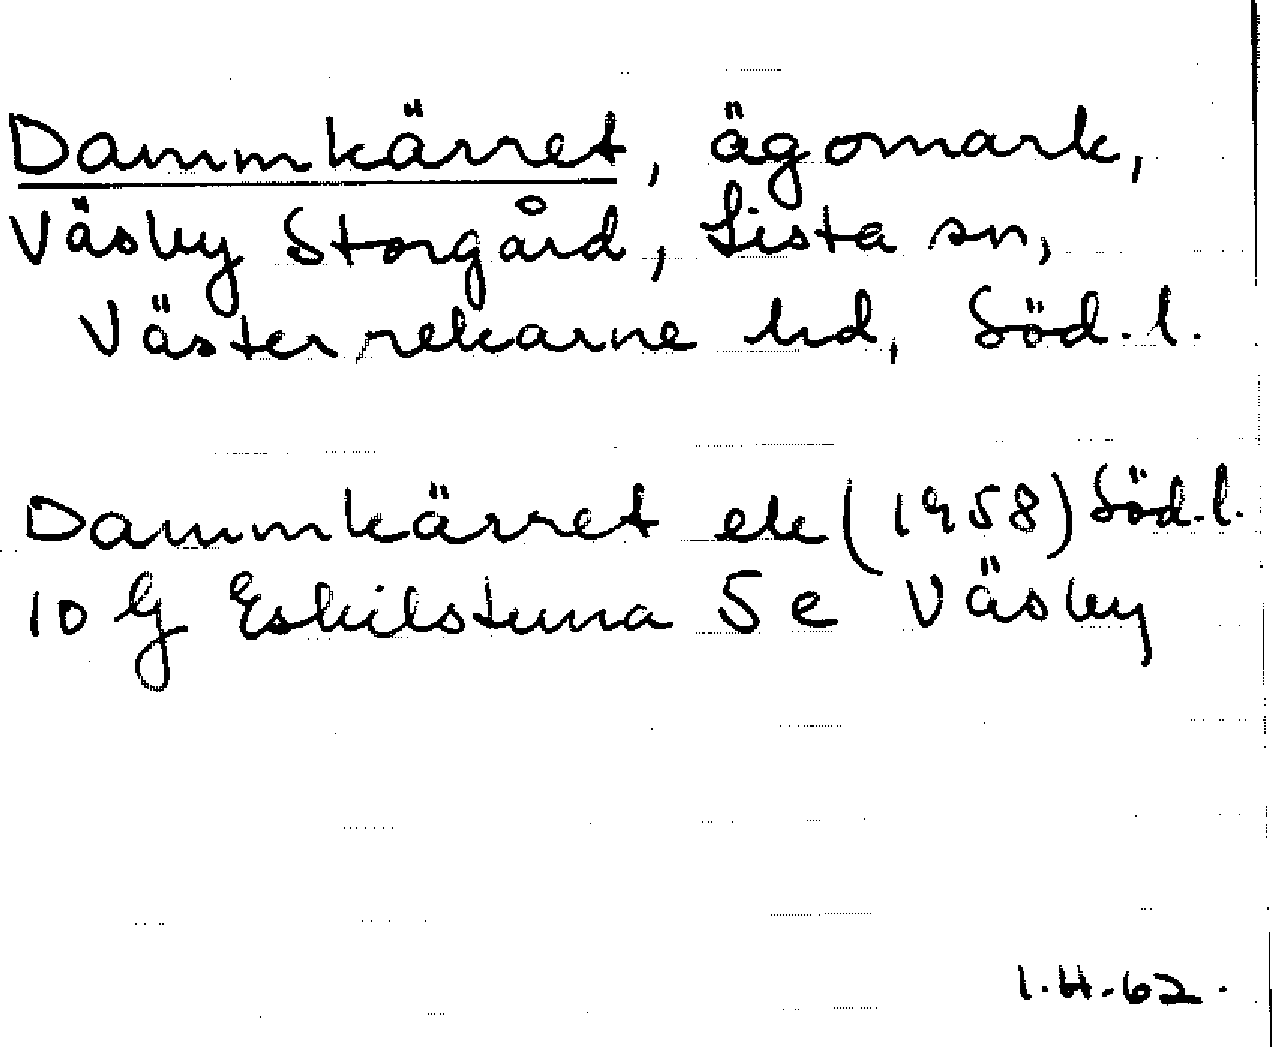 Dammkärret, ägomark,
Väsby Storgård, Lista sn,
Västerrekarne hd, Söd.l.
Dammkärret ek (1958) Söd.l.
10 G Eskilstuna 5 e Väsby
I.H.62.